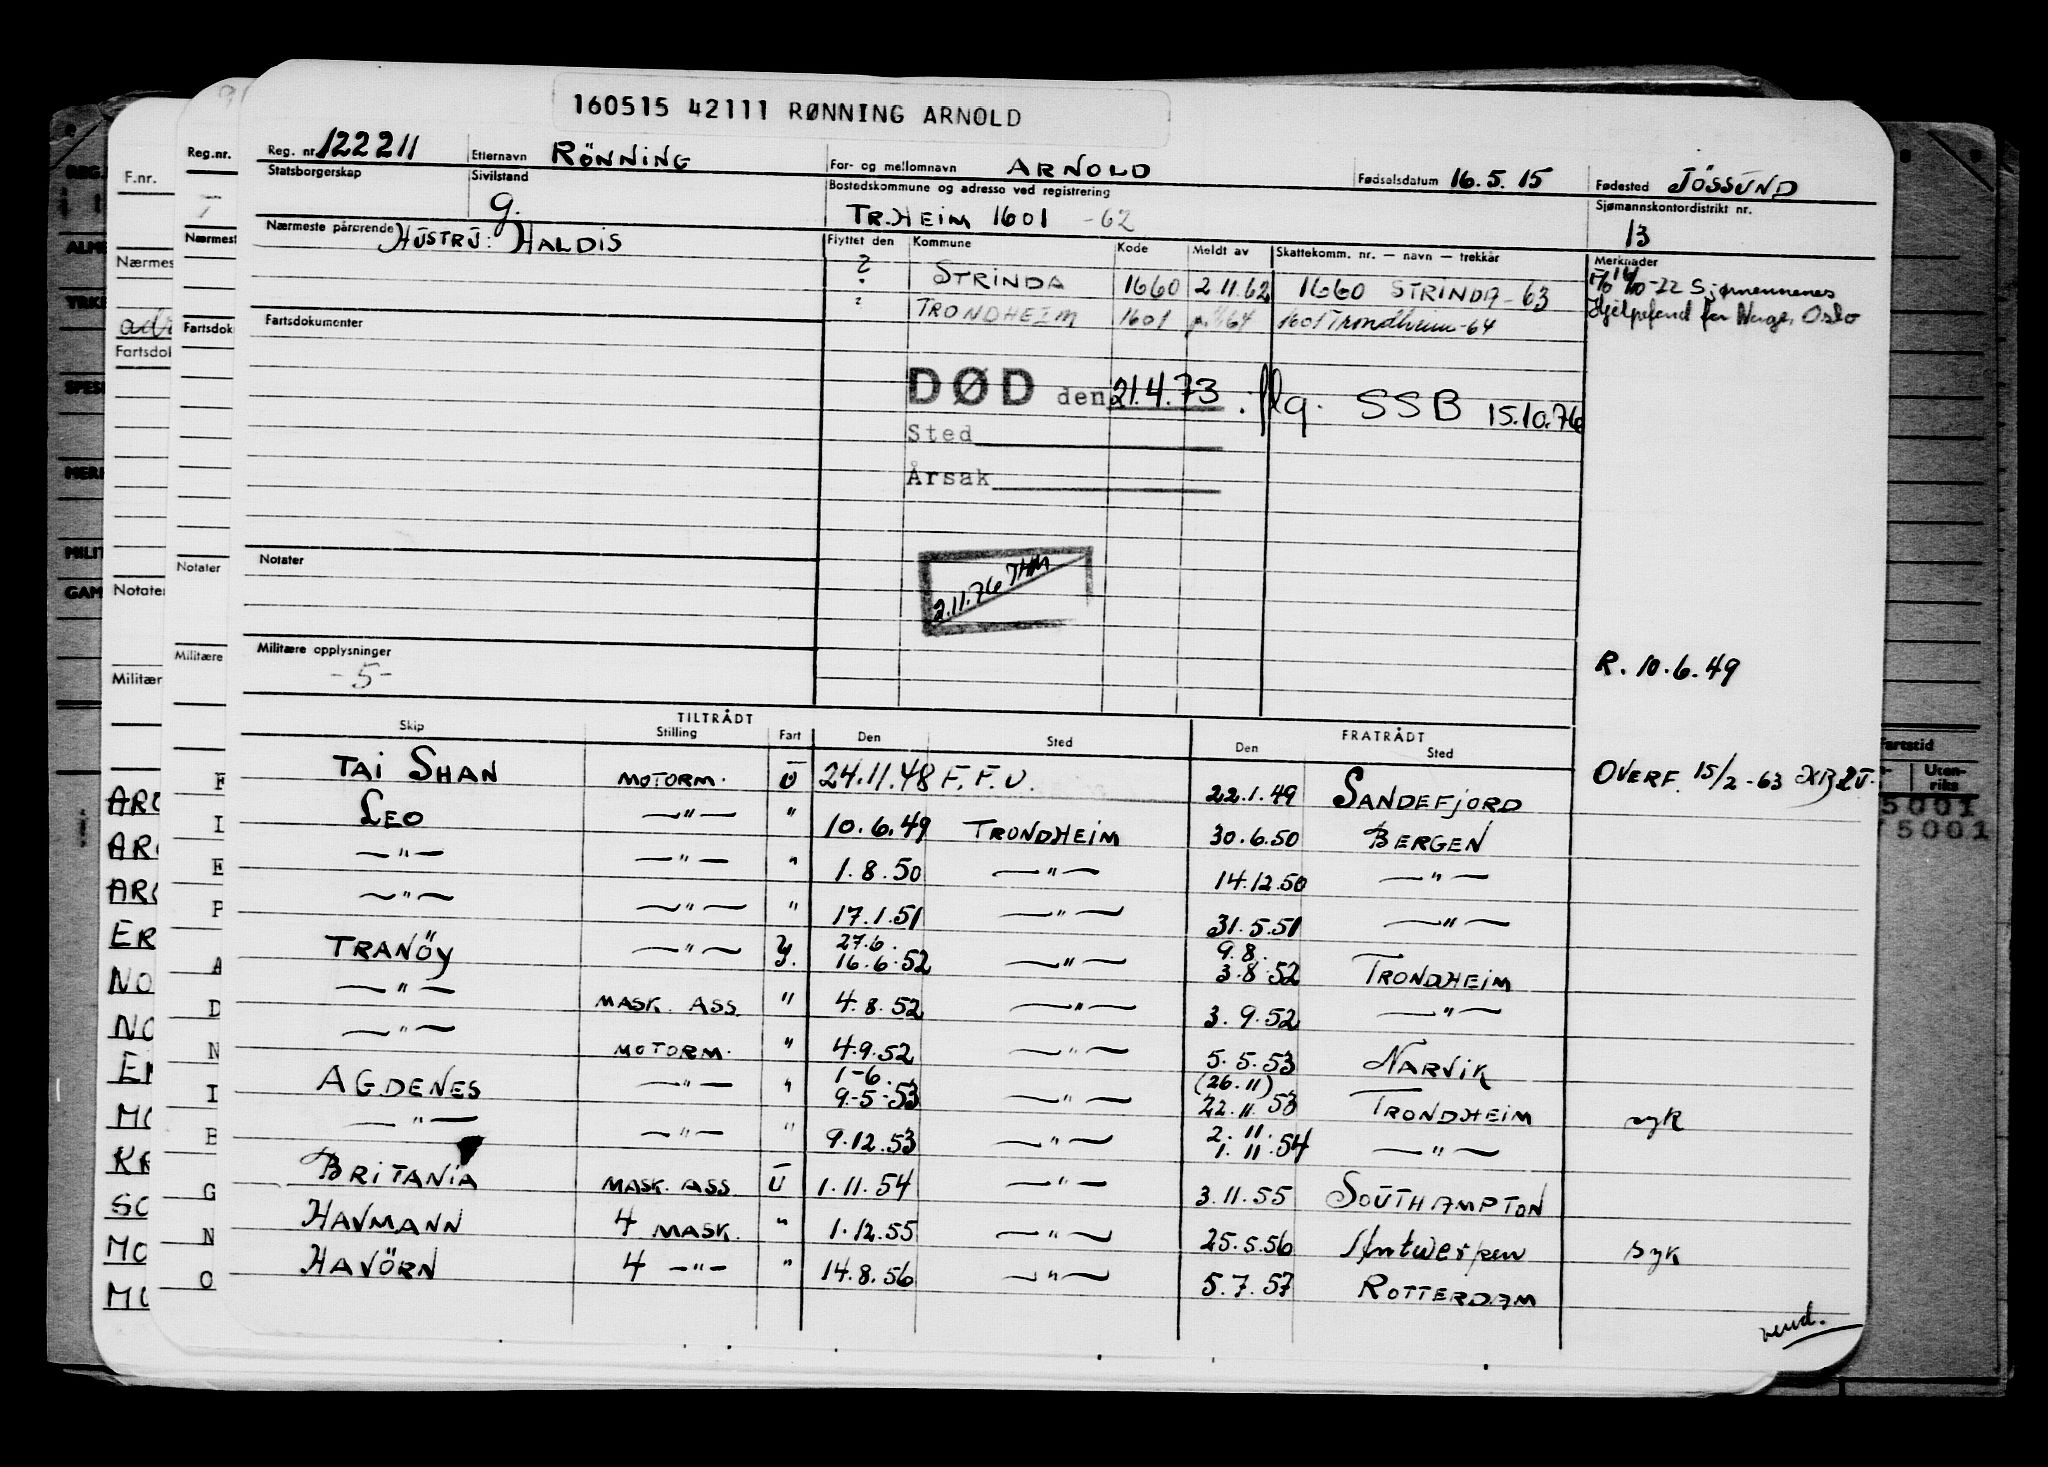 160515 42111 RØNNING ARNOLD
Reg. nr. 122211 Etternavn RÖNNING For- og mellomnavn ARNOLD Fødselsdatum 16.5.15 Fødested JÖSSUND
Statsborgerskap Sivilstand g. Bostedskommune og adresse ved registrering TR.HEIM 1601 -62 Sjømannskontordistrikt nr. 13
Nærmeste pårørende HUSTRU: HALDIS Flyttet den Kommune Kode Meldt av Skattekomm. nr. — navn — trekkår Merknader
? STRINDA 1660 2.11.62 1660 STRINDA-63 -72 Sjømennenes
? TRONDHEIM 1601 64 1601 Trondheim-64 Hjelpefond for Norge, Oslo
Fartsdokumenter
DØD den 21.4.73. flg. SSB 15.10.76
Sted
Årsak
Notater
2.11.76 THM
Militære opplysninger
-5-
R. 10.6.49
TILTRÅDT FRATRÅDT
Skip Stilling Fart Den Sted Den Sted
TAI SHAN MOTORM. U 24.11.48 F.F.U. 22.1.49 SANDEFJORD OVERF. 15/2-63
LEO —"— " 10.6.49 TRONDHEIM 30.6.50 BERGEN
—"— —"— " 1.8.50 —"— 14.12.50 —"—
—"— —"— " 17.1.51 —"— 31.5.51 —"—
27.6. 9.8.
TRANÖY —"— 16.6.52 —"— 3.8.52 TRONDHEIM
—"— MASK. ASS. " 4.8.52 —"— 3.9.52 —"—
—"— MOTORM. " 4.9.52 —"— 5.5.53 NARVIK
1-6. (26.11)
AGDENES —"— " 9-5-53 —"— 22.11.53 TRONDHEIM syk
2.11.
—"— —"— " 9.12.53 —"— 1.11.54 —"—
BRITANIA MASK. ASS. U 1.11.54 —"— 3.11.55 SOUTHAMPTON
HAVMANN 4 MASK. " 1.12.55 —"— 25.5.56 Antwerpen syk
HAVÖRN 4 —"— " 14.8.56 —"— 5.7.57 ROTTERDAM
vend.
Reg.nr.
Nærmest
Fartsdok
Notater
Militære
F
I
E
P
A
D
N
I
B
G
N
O
F.nr.
Nærmes
adr
Fartsdok
Notater
Militær
ARC
ARC
ARC
ER
NO
NO
MO
KR
SC
MO
MO
REG.
ALM
YRK
SPES
MER
MILIT
GAM
fartstid
Uten-
riks
5001
75001